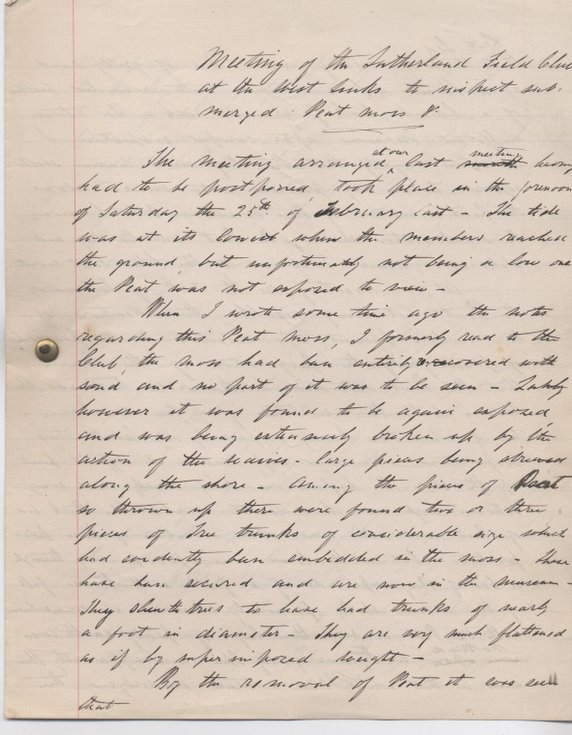 Meeting of the Sutherland Field Club
at the West Links to inspect sub-
merged Peat moss &.
The meeting arranged at our last meeting having
had to be postponed, took place in the forenoon
of Saturday the 25th of February last - The tide
was at its lowest when the members reached
the ground, but unfortunately not being a low one
the Peat was not exposed to view -
When I wrote some time ago the note
regarding this Peat Moss, I formerly read to the
Club, the moss had been entirely covered with
sand and no part of it was to be seen - Lately
however it was found to be again exposed,
and was being extensively broken up by the
action of the waves - large pieces being strewed
along the shore - Among the pieces of Peat
so thrown up there were found two or three
pieces of Tree trunks of considerable size which
had evidently been embedded in the moss - These
have been secured and are now in the museum -
They shew the trees to have had trunks of nearly
a foot in diameter - They are very much flattened
as if by super imposed weight -
By the removal of Peat it was seen
that